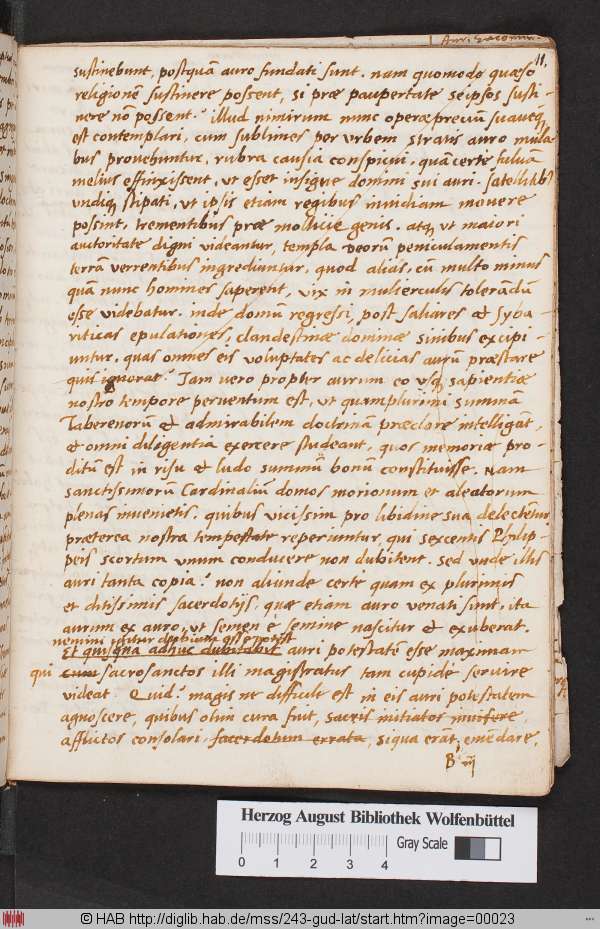 11.
sustinebunt, postquã auro fundati sunt. nam quomodo quæso
religionẽ sustinere possent, si præ paupertate seipsos susti-
nere nõ possent? illud nimirum nunc operæpreciũ suaueq3
est contemplari, cum sublimes per vrbem stratis auro mula
bus prouehuntur, rubra causia conspicui, quã certe fulua
melius effinxissent, vt esset insigne domini sui auri. satellitib9
vndiq3 stipati, vt ipsis etiam regibus inuidiam mouere
possint, trementibus præ mollicie genis. atq3 vt maiori
autoritate digni videantur, templa deorũ peniculamentis
terrã verrentibus ingrediuntur, quod alias, cũ multo minus
quã nunc homines saperent, vix in mulierculis tolerãdũ
esse videbatur. inde domũ regressi, post saliares et Syba-
riticas epulationes, clandestinæ dominæ sinibus excipi-
untur. quas omnes eis voluptates ac delicias aurũ præstare
quis ignorat? Iam vero propter aurum eo vsq3 sapientiæ
nostro tempore peruentum est, vt quamplurimi summam
Taberenorũ et admirabilem doctrinã præclare intelligãt,
et omni diligentia exercere studeant, quos memoriæ pro-
ditũ est in risu et ludo summũ bonũ constituisse. Nam
sanctissimorũ Cardinaliũ domos morionum et aleatorum
plenas inuenietis. quibus vicissim pro libidine sua delectẽtur
præterea nostra tempestate reperiuntur, qui sexcentis Philip-
peis scortum vnum conducere non dubitent. sed vnde illis
auri tanta copia? non aliunde certe quam ex plurimis
et ditissimis sacerdotijs, quæ etiam auro venati sunt, ita
aurum ex auro, vt semen e semine nascitur et exuberat.
nemini igitur dubium esse potest
Et quisquã adhuc dubitabit auri potestatẽ esse maximam
qui cum sacrosanctos illi magistratus tam cupide seruire
videat. Quid? magis ne difficile est in eis auri potestatem
agnoscere, quibus olim cura fuit, sacris initiatos inuisere,
afflictos consolari, sacerdotum errata, siqua erãt, emẽdare,
B iij
Herzog August Bibliothek Wolfenbüttel
0 1 2 3 4 Gray Scale
© HAB http://diglib.hab.de/mss/243-gud-lat/start.htm?image=00023